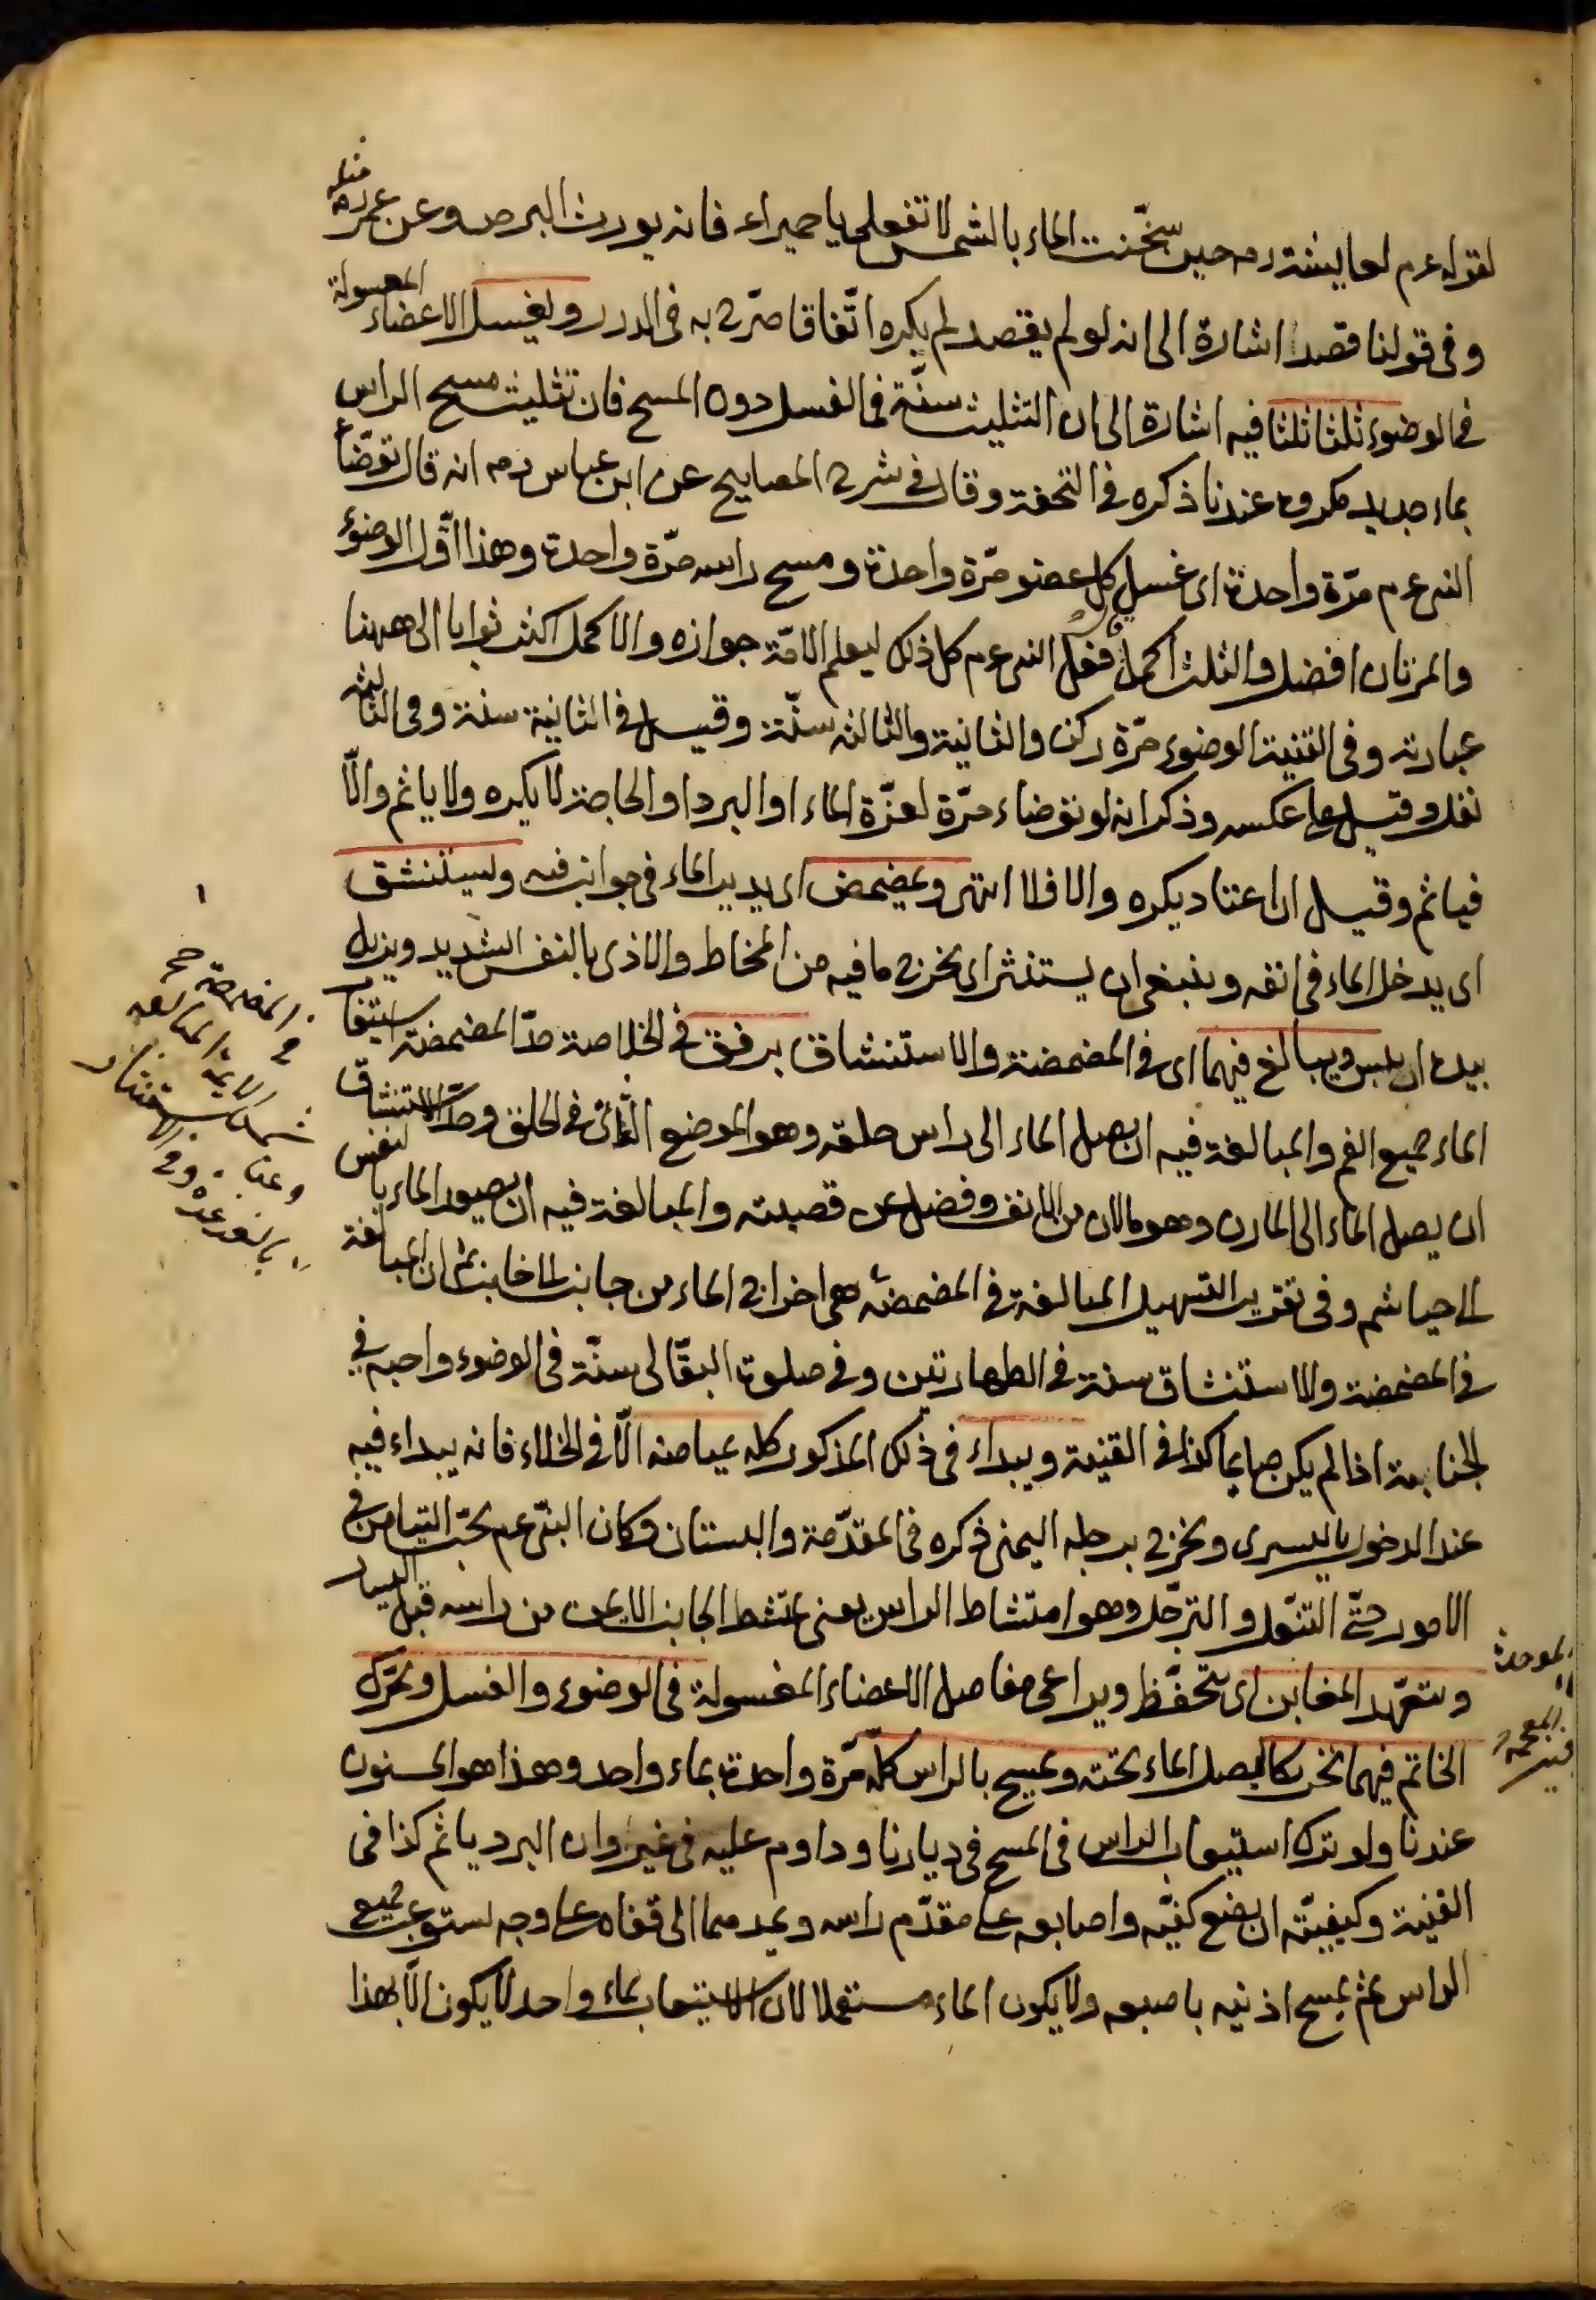 لقوله عم لعايشة رم حين سخّنت الماء بالشمس لا تفعلى يا حميراء فانه يورث البرص وعن عمر رم مثله
وفى قولنا قصدا اشارة الى انه لو لم يقصد لم يكره اتّفاقا صرّح به فى الدرر ويغسل الاعضاء المغسولة
فى الوضوء ثلثا ثلثا فيه اشارة الى ان التثليث سنّة فى الغسل دون المسح فان تثليث مسح الراس
بماء جديد مكروه عندنا ذكره فى التحفة وقال فى شرح المصابيح عن ابن عباس رم انه قال توضّأ
النبى عم مرّة واحدة اى غسل كل عضو مرّة واحدة ومسح راسه مرّة واحدة وهذا اقّل الوضوء
والمرتان افضل والثلث اكمل ففعل النبى عم كل ذلك ليعلم الامّة جوازه والاكمل اكثر ثوابا الى ههنا
عبارته وفى القنية الوضوء مرّة ركن والثانية والثالثه سنّة وقيل فى الثانية سنة وفى الثالثه
نفل وقيل على عكسه وذكر انه لو توضاء مرّة لعزّة الماء او البرد او الحاجة لا يكره ولا ياثم والّا
فياثم وقيل ان اعتاد يكره والا فلا انتهى ويمضمض اى يدير الماء فى جوانب فمه ويستنشق
اى يدخل الماء فى انفه وينبغى ان يستنثر اى يخرج ما فيه من المخاط والاذى بالنفس الشديد ويزيل
بيده ان يبس ويبالغ فيهما اى فى المضمضة والاستنشاق برفق فى الخلاصة حدّ المضمضة استيعاب
الماء جميع الفم والمبالغة فيه ان يصل الماء الى راس حلقه وهو الموضع الناتى فى الحلق وحدّ الاستنشاق
ان يصل الماء الى المارن وهو ما لان من الانف وفضل عن قصبته والمبالغة فيه ان يصير الماء بالنفس
الى الخياشم وفى تقريب التسهيل المبالغة فى المضمضة هى اخراج الماء من جانب الى جانب ثم ان المبالغة
فى المضمضة والاستنشاق سنة فى الطهارتين وفى صلوة البقّالى سنّة فى الوضوء واجبة فى
الجنابة اذا لم يكن صايما كذا فى القنية ويبداء فى ذلك المذكور كله بميامنه الّا فى الخلاء فانه يبداء فيه
عند الدخول باليسرى ويخرج برجله اليمنى ذكره فى المقدّمة والبستان وكان النبى عم يحبّ التيامن فى
الامور حتّى التنعّل والترجّل وهو امتشاط الراس يعنى يمتشط الجانب الايمن من راسه قبل اليسار
ويتعهّد المغابن اى يتحفّظ ويراعى مفاصل الاعضاء المغسولة فى الوضوء والغسل ويحّرك
الخاتم فيهما تحريكا ليصل الماء تحته ويمسح بالراس كلّه مرّة واحدة بماء واحد وهذا هو المسنون
عندنا ولو ترك استيعاب الراس فى المسح فى ديارنا وداوم عليه فى غير اوان البرد ياثم كذا فى
القنية وكيفيّته ان يضع كفّيه واصابعه على مقدّم راسه ويمدهما الى قفاه على وجه يستوعب جميع
الراس ثم يمسح اذنيه باصبعه ولا يكون الماء مستعملا لان الاستيعاب بماء واحد لا يكون الّا بهذا